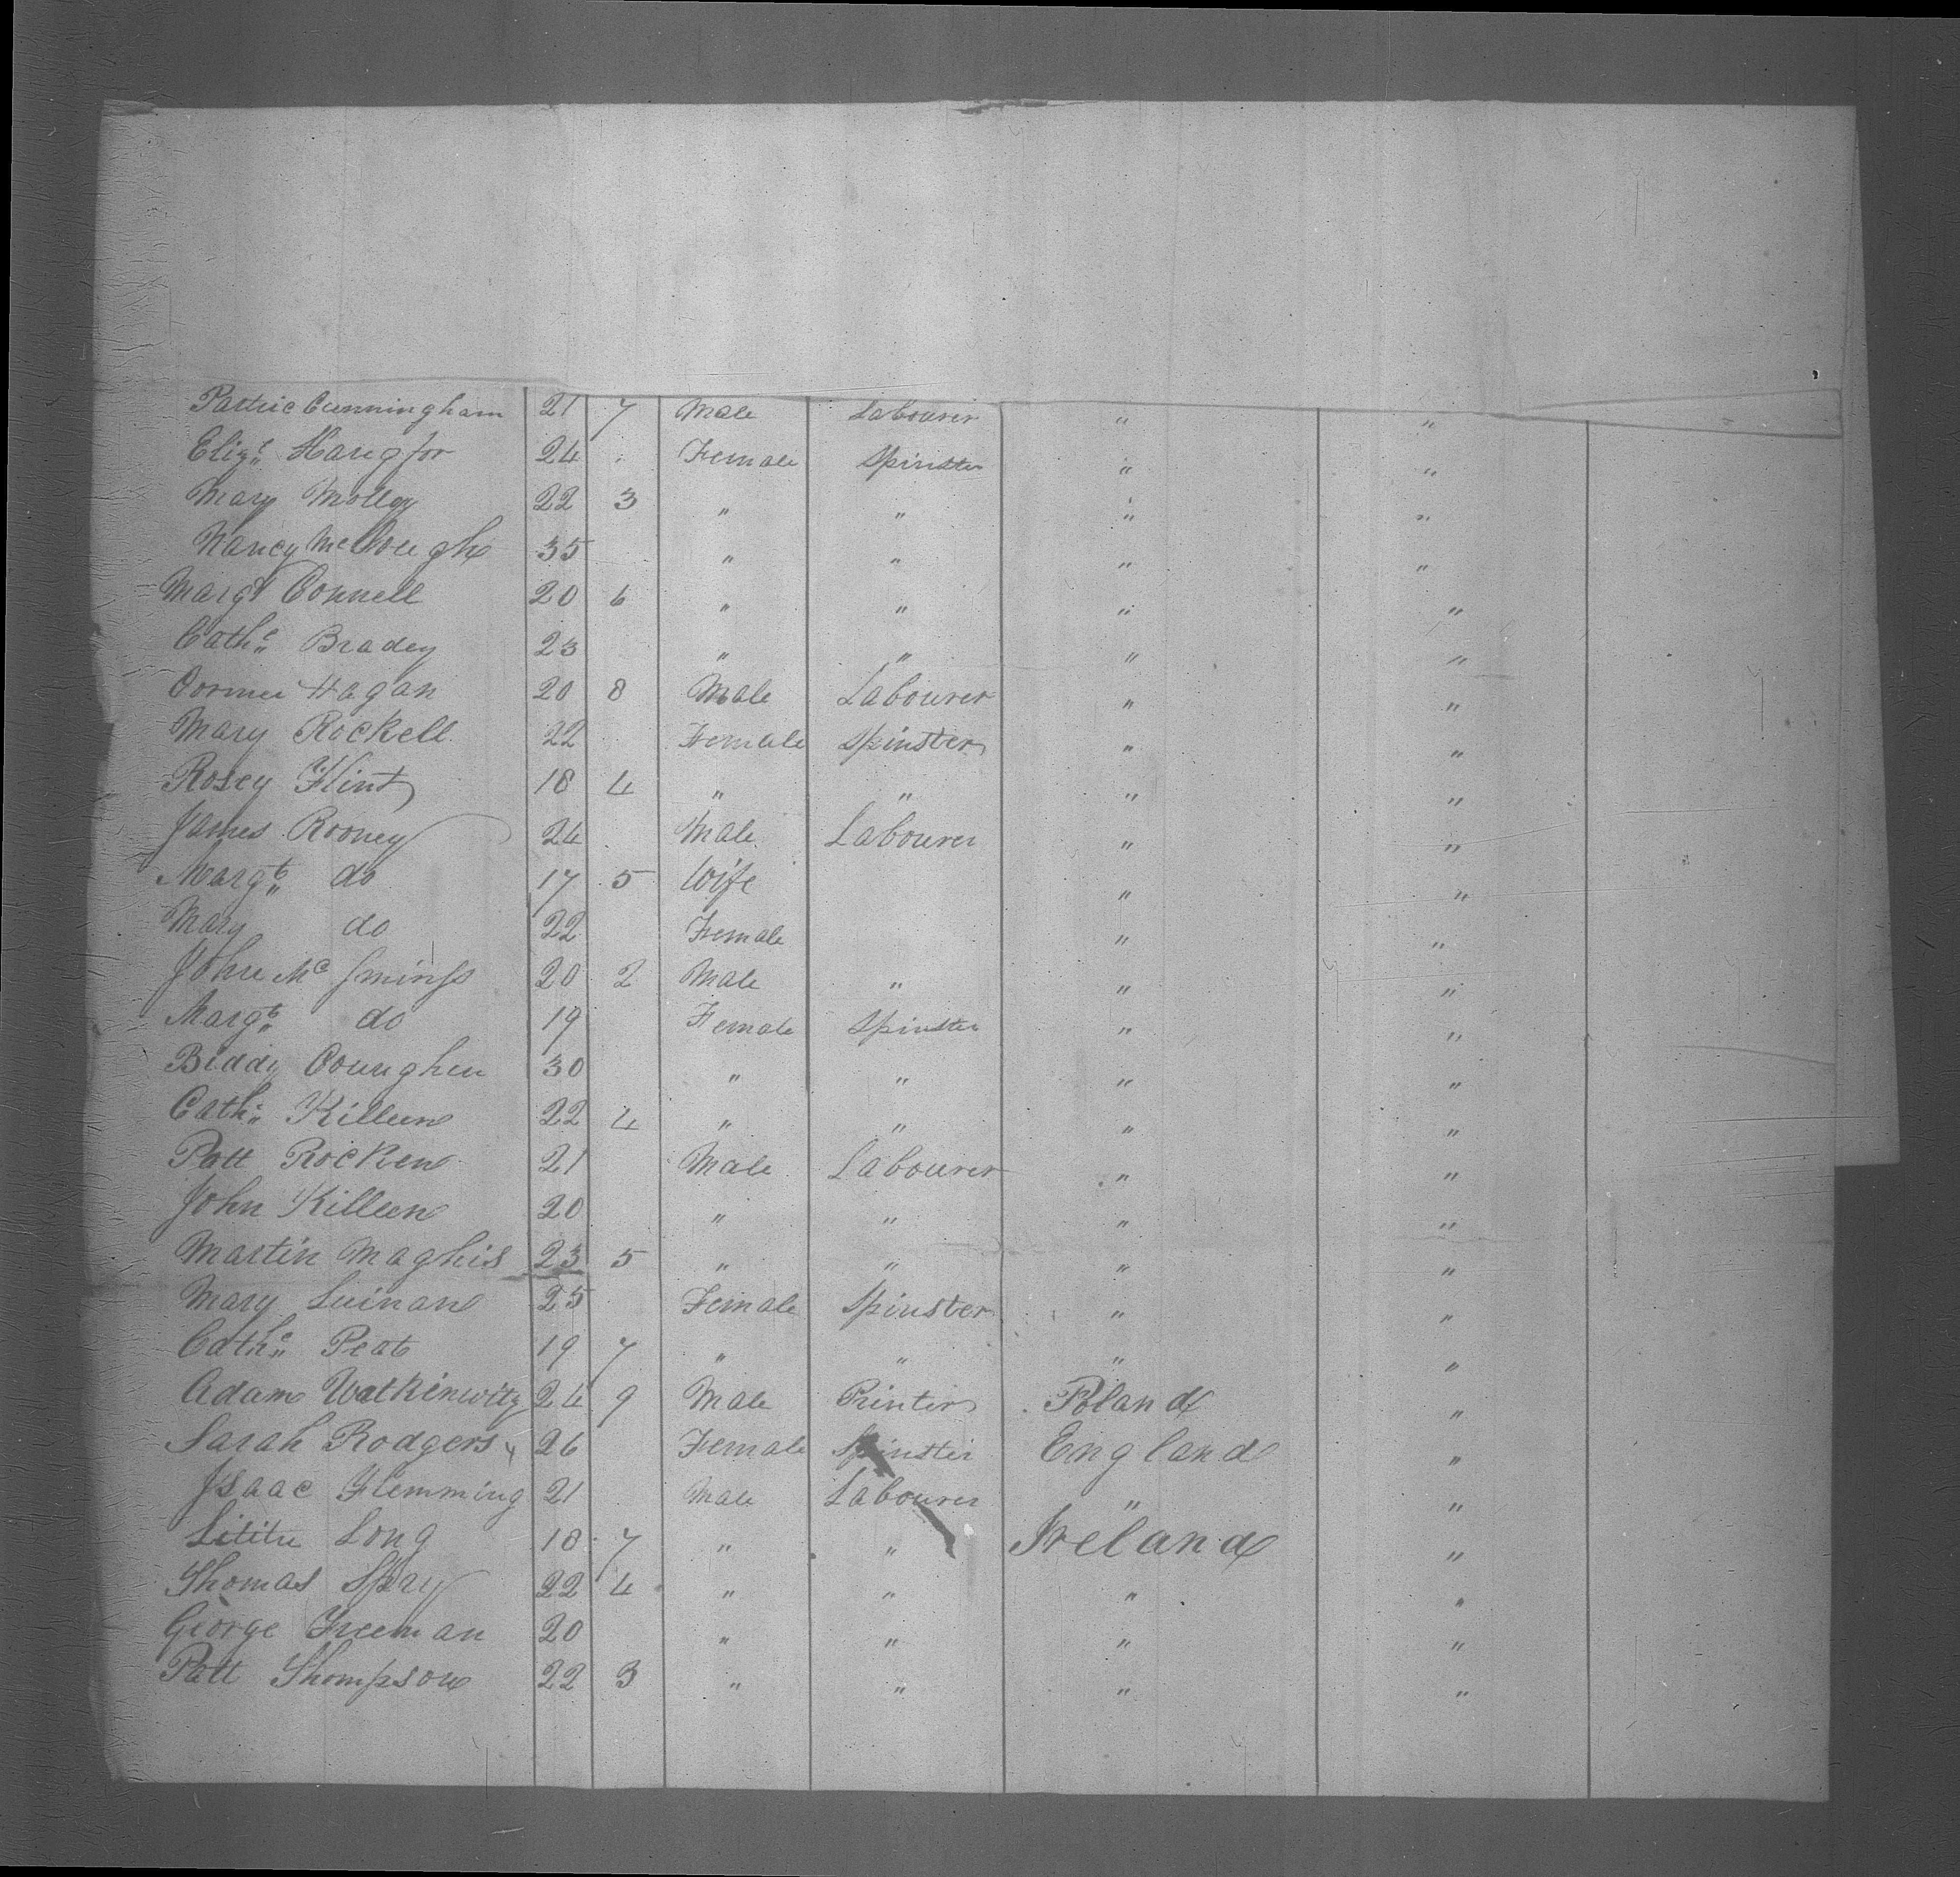 Patric Cunningham 21 7 Male Labourer " "
Eliz. Hangfor 24 Female Spinster " "
Mary Molloy 22 3 " " " "
Nancy Mc 35 " " " "
Margt Connell 20 6 " " " "
Cathe Bradey 23 " " " "
Hagan 20 8 Male Labourer " "
Mary Rockell 22 Female Spinster " "
Rosey Flint 18 4 " " " "
James Rooney 24 Male Labourer " "
Margt do 17 5 Wife " "
Mary do 22 Female " "
John Mc 20 2 Male " " "
Margt do 19 Female Spinster " "
Biddy Counghen 30 " " " "
Cath. Killeen 22 4 " " " "
Patt Rocken 21 Male Labourer " "
John Killeen 20 " " " "
Martin Maghis 23 5 " " " "
Mary Luinan 25 Female Spinster " "
Cathe Peat 19 7 " " " "
Adam Watkinwitz 24 9 Male Printer Poland "
Sarah Rodgers 26 Female Spinster England "
Isaac Flemming 21 Male Labourer " "
Long 18 7 " " Ireland "
Thomas Spry 22 4 " " " "
George Freeman 20 " " " "
Patt Thompson 22 3 " " " "